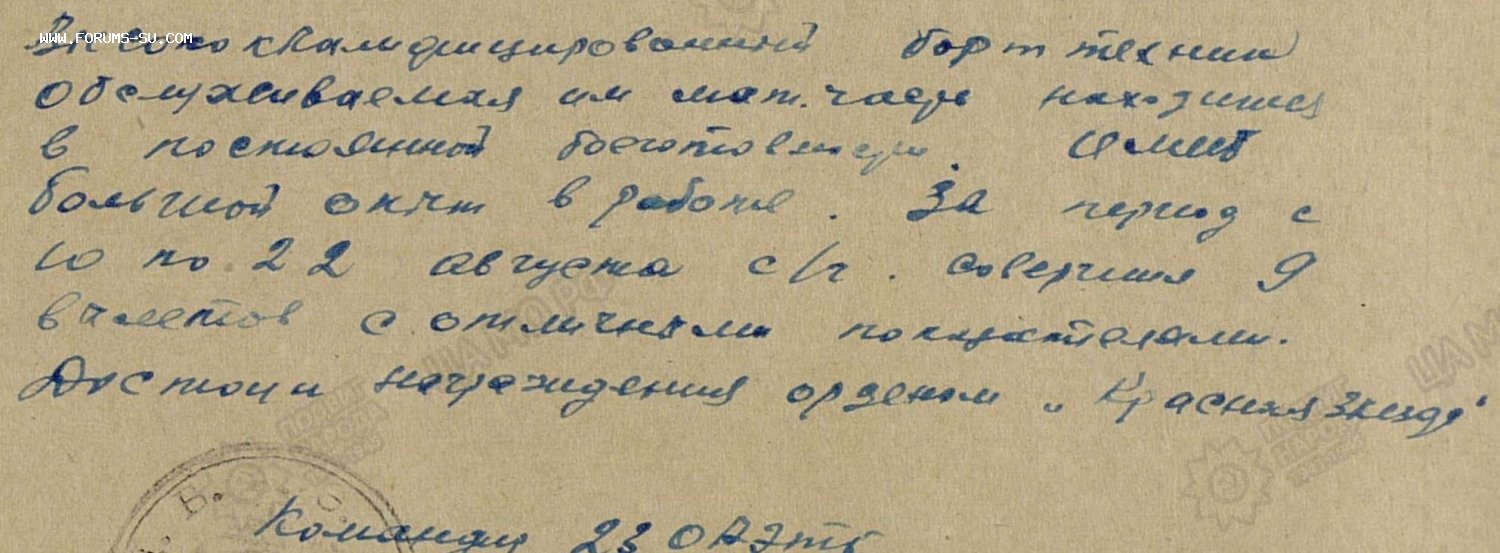 www.FORUMS-SU.com
Высококвалифицированный борт техник
обслуживаемая им мат.часть находится
в постоянной боеготовности. Имеет
большой опыт в работе. За период с
10 по 22 августа с/г. совершил 9
вылетов с отличными показателями.
Достоин награждения орденом „Красная звезда"
Б. З.
Командир 23 ОАЭТБ
ЦАМО РФ
ПАМЯТЬ
НАРОДА
ЦАМ